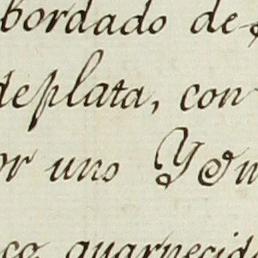 bordado de
deplata, con
or uno Yom
co guarnecid